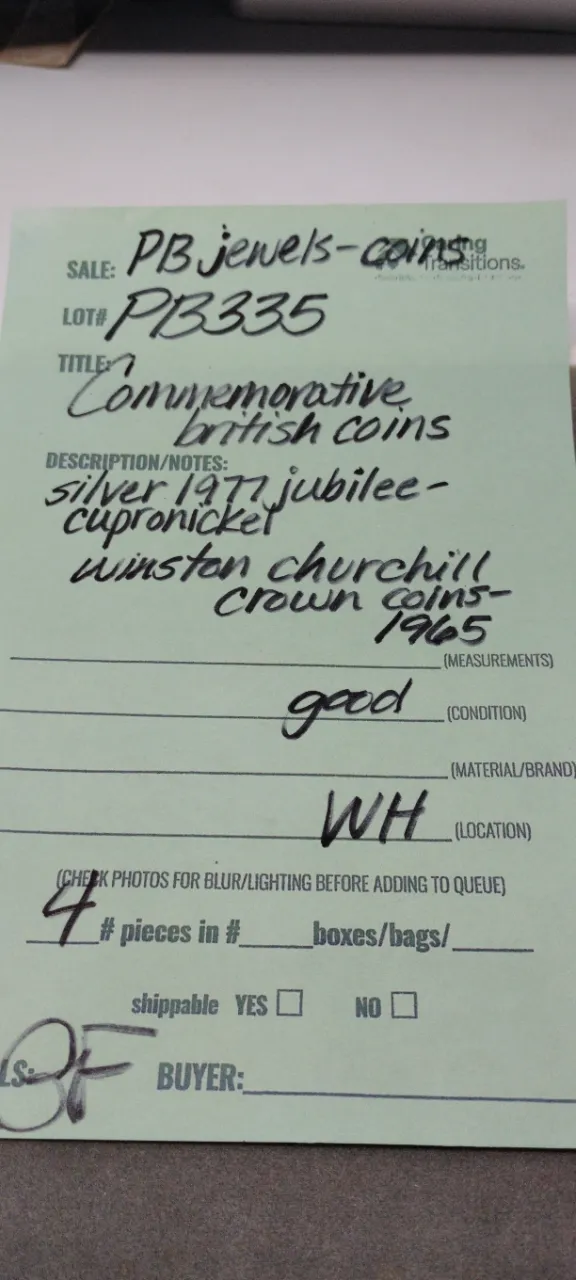 SALE: PB jewels-coins
Transitions.
LOT# PB335
TITLE:
Commemorative
british coins
DESCRIPTION/NOTES:
silver 1977 jubilee-
cupronickel
winston churchill
crown coins-
1965
(MEASUREMENTS)
good (CONDITION)
(MATERIAL/BRAND)
WH (LOCATION)
(CHECK PHOTOS FOR BLUR/LIGHTING BEFORE ADDING TO QUEUE)
4 # pieces in #_____boxes/bags/_____
shippable YES ☐ NO ☐
LS: BUYER: